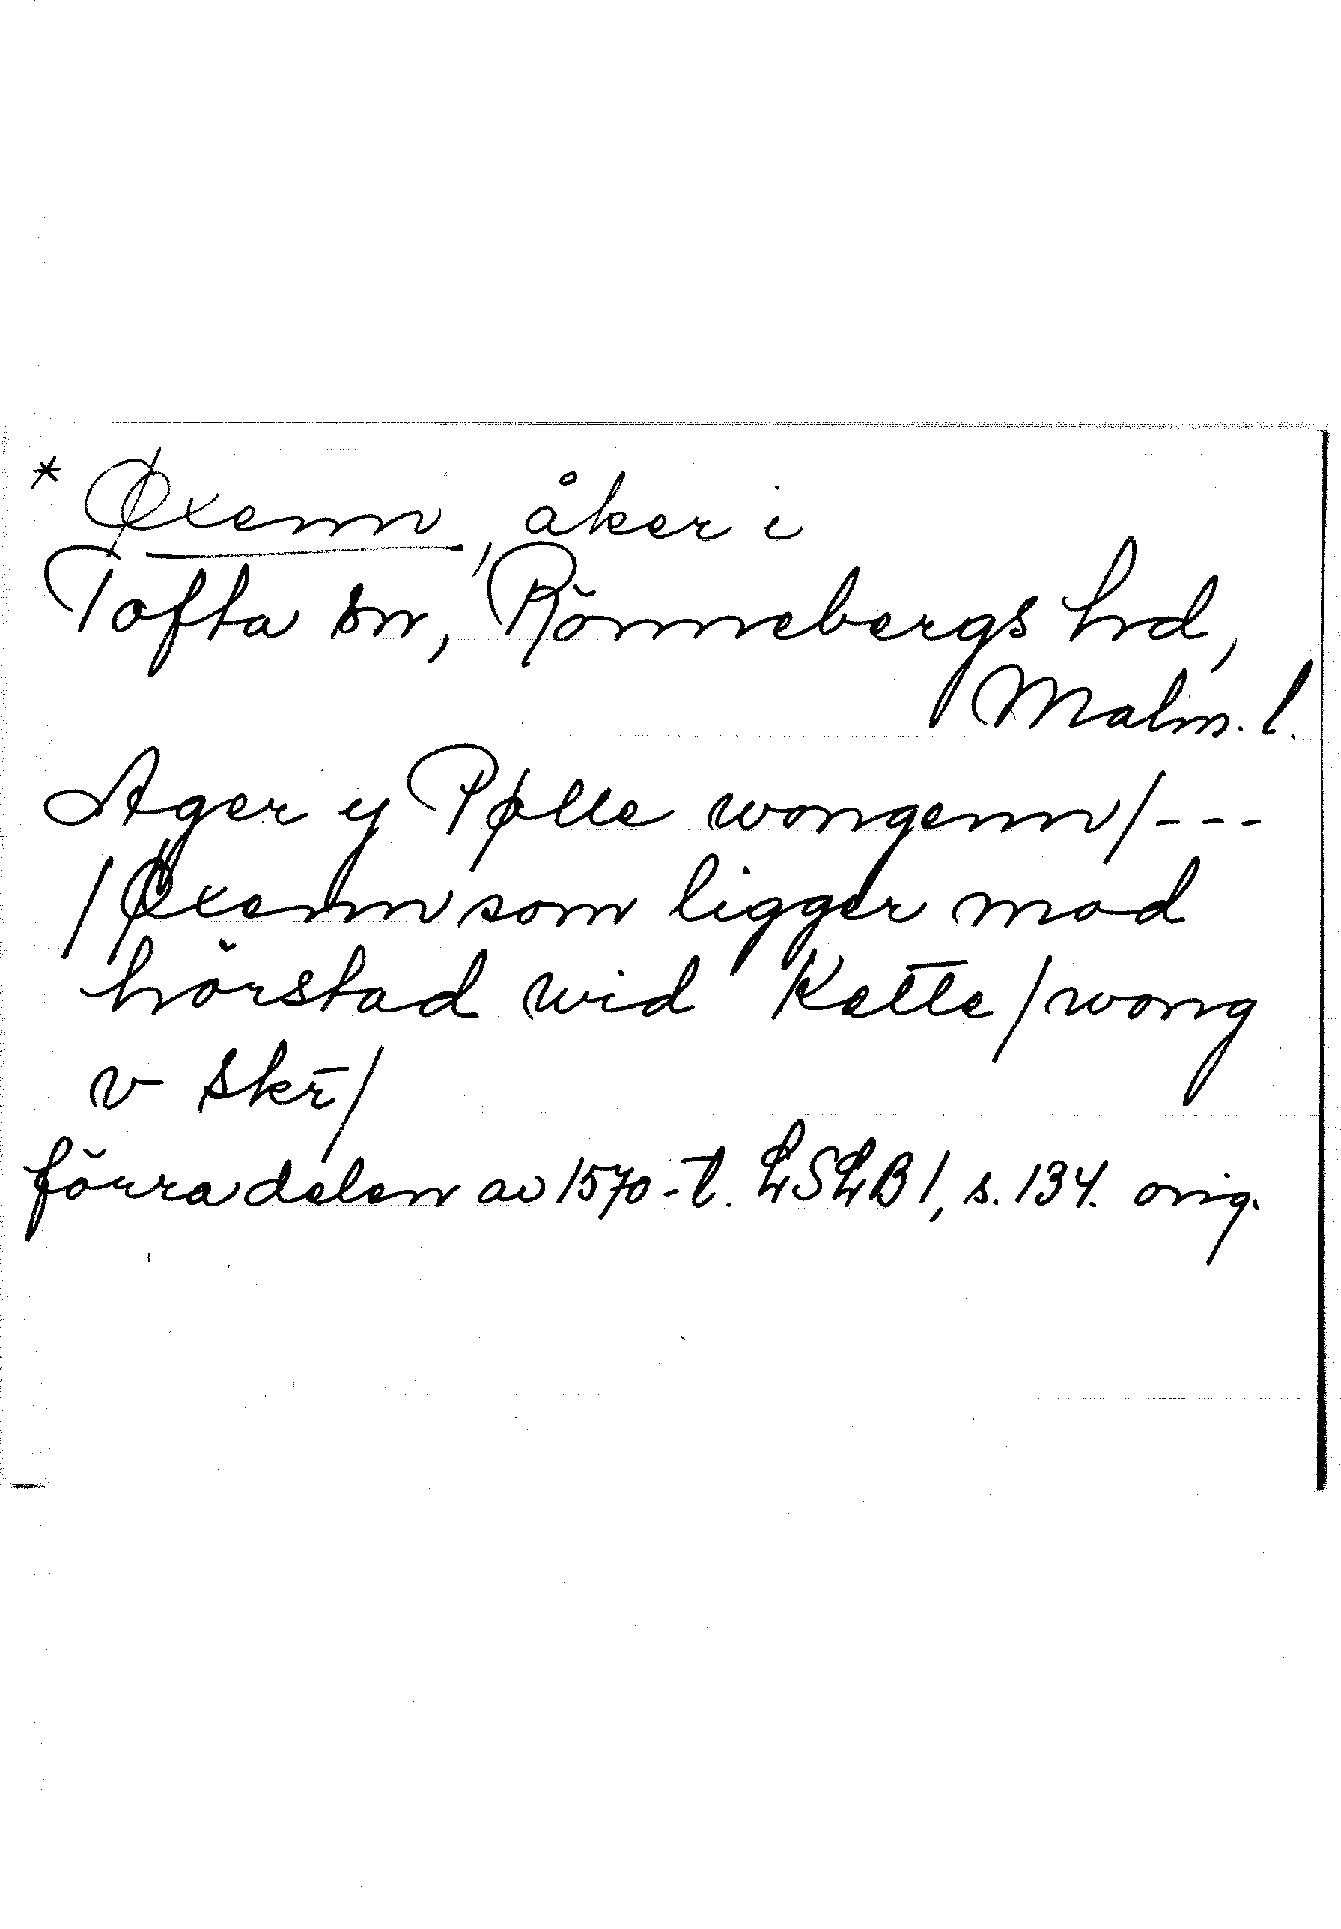 * Øxenn, åker i
Tofta sn, Rönnebergs hd,
Malm. l.
Ager y Pølle wongenn/---
/Øxenn som ligger mod
hörstad wid Kette/wong
v skr/
förra delen av 1570-t. LSLB 1, s. 134. orig.